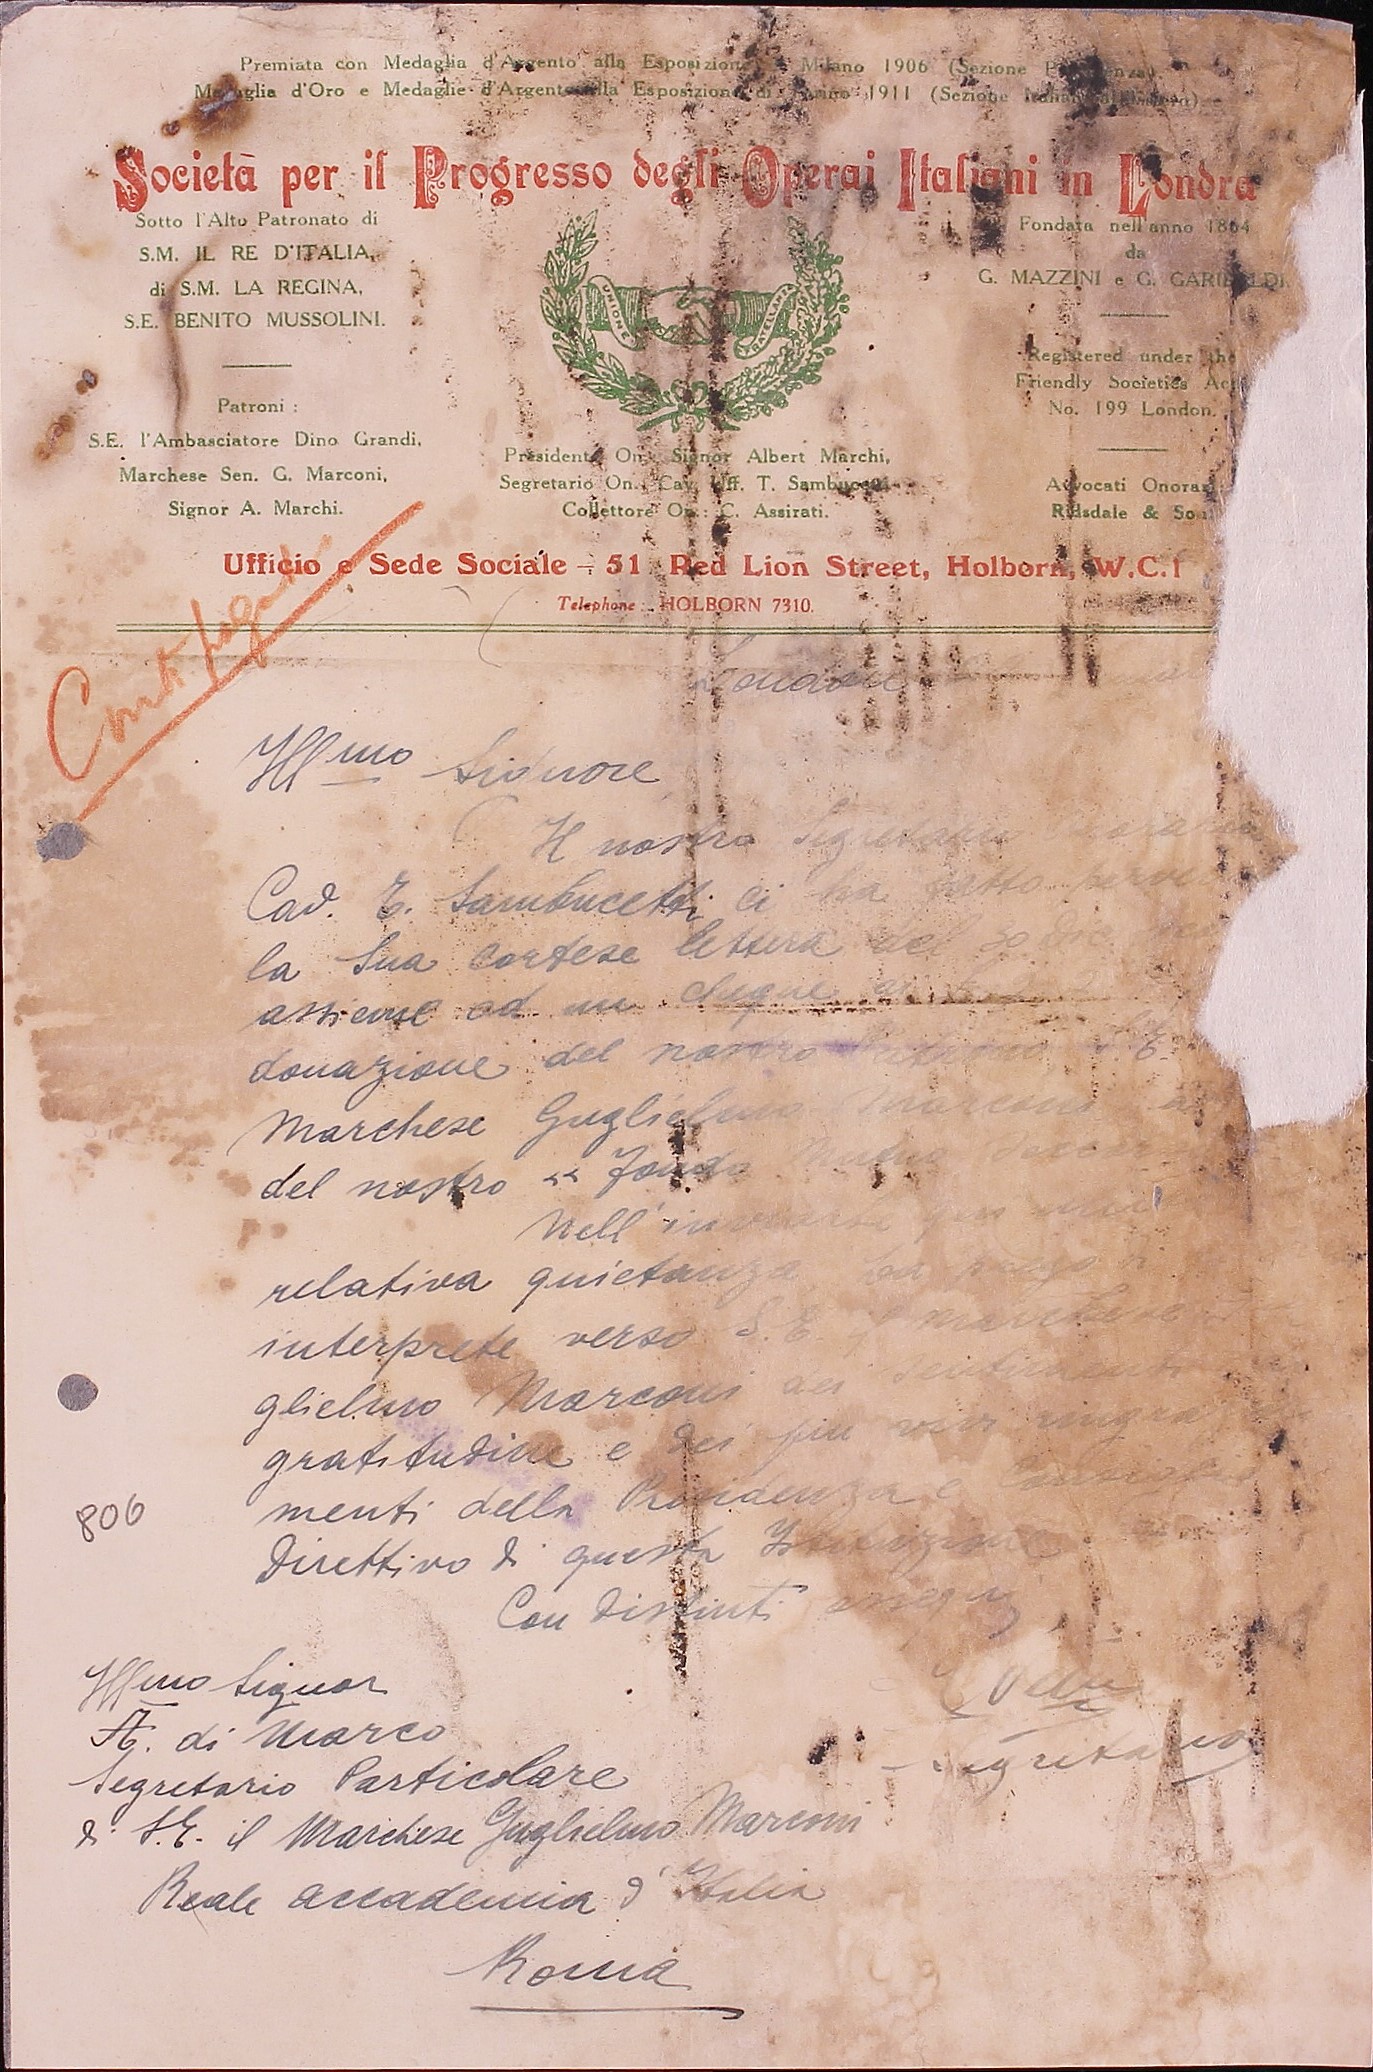 Premiata con Medaglia d'Argento alla Esposizione Milano 1906 (Sezione
Medaglia d'Oro e Medaglie d'Argento alla Esposizione di 1911 (Sezione
Società per il Progresso degli Operai Italiani in Londra
Sotto l'Alto Patronato di
S.M. IL RE D'ITALIA,
di S.M. LA REGINA,
S.E. BENITO MUSSOLINI.
Patroni :
S.E. l'Ambasciatore Dino Grandi,
Marchese Sen. G. Marconi,
Signor A. Marchi.
UNIONE FRATELLANZA
Presidente On. Signor Albert Marchi,
Segretario On. Cav. Uff. T. Sambucetti
Collettore On.: C. Assirati.
Fondata nell'anno 1864
da
G. MAZZINI e G. GARIBALDI.
Registered under the
Friendly Societies Act
No. 199 London.
Avvocati Onorar
& Son
Ufficio e Sede Sociale – 51 Red Lion Street, Holborn, W.C.1
Telephone: HOLBORN 7310.
Londra
Illmo Signore
Il nostro Segretario Onorario
Cav. T. Sambucetti ci ha fatto perve
la Sua cortese lettera del 30
assieme ad un cheque
donazione del nostro S.E.
Marchese Guglielmo Marconi a
del nostro “ Fondo Mutuo
Nell'inviarle qui
relativa quietanza La prego
interprete verso S.E. il Marchese
glielmo Marconi dei sentimenti
gratitudine e dei più vivi ringra
menti della Presidenza e Consiglio
Direttivo di questa Istituzione
Con distinti ossequi
Segretario
Illmo Signor
di Marco
Segretario Particolare
di S.E. il Marchese Guglielmo Marconi
Reale accademia d'Italia
Roma
806